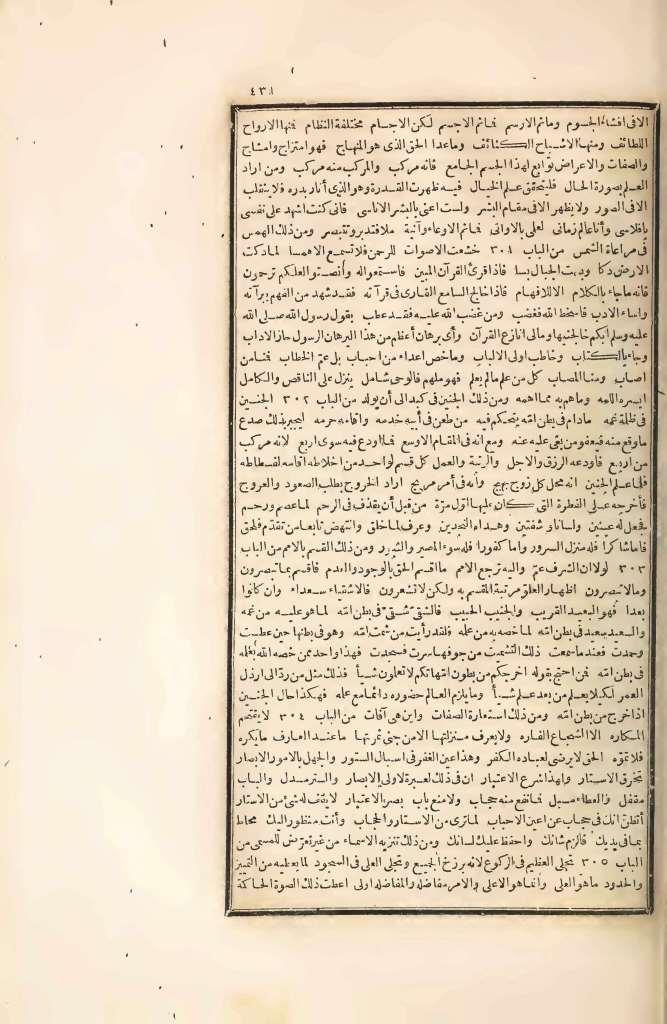 ٤٣١
الا فى افشاء الجسوم وما تم الا رسم فما تم الا جسم لكن الاجسام مختلفة النظام فنها الارواح
اللطائف ومنها الاشباح الكثائف وما عدا الحق الذى هو المنهاج فهو امتزاج وامشاج
والصفات والاعراض توابع لهذا الجسم الجامع فانه مركب والمركب منه مركب ومن اراد
العلم بصورة الحال فليتحقق علم الخيال فيه ظهرت القدرة وهو الذى أنار بدره فلا ينقلب
الا فى الصور ولا يظهر الا فى مقام البشر ولست اعنى بالبشر الاناسى فانى كنت اشهد على نفسى
بافلاسى وأنا عالم زمانى لعلى بالاوانى فما تم الا وعاء وآنية ملا فتدبر وتبصر ومن ذلك الهمس
فى مراعاة الشمس من الباب ٣٠١ خشعت الاصوات للرحمن فلا تسمع الا همسا لما دكت
الارض دكا وبست الجبال بسا فاذا قرئ القرآن المبين فاستمعوا له وأنصتوا لعلكم ترحمون
فانه ما جاء بالكلام الا للافهام فاذا خالج السامع القارئ فى قرآنه فقد شهد من الفهم ببرآنه
واساء الادب فاسخط الله فغضب ومن غضب الله عليه فقد عطب يقول رسول الله صلى الله
عليه وسلم أيكم خالجنيها ومالى انازع القرآن وأى برهان أعظم من هذا البرهان الرسول حاز الاداب
وجاء بالكتاب وخاطب اولى الالباب وما خص اعداء من احباب بل عم الخطاب فنا من
اصاب ومنا المصاب كل من علم ما لم يعلم فهو ملهم فالوحى شامل ينزل على الناقص والكامل
ايسره اللمه وما هم به مما اهمه ومن ذلك الجنين فى كبد الى أن يولد من الباب ٣٠٢ الجنين
فى ظلمة غمه مادام فى بطن امّه يتحكم فيه من طعن فى أبيه خدمه واقامه حرمه ليجبر بذلك صدع
ما وقع منه فيعفو من بقى عليه عنه ومع انه فى المقام الاوسع فما اودع فيه سوى اربع لانه مركب
من اربع فاودعه الرزق والاجل والرتبة والعمل كل قسم لواحد من اخلاطه اقامه لقسطاطه
فلما علم الجنين انه محل كل زوج بهيج وانه فى أمر مريج اراد الخروج يطلب الصعود والعروج
فأخرجه على الفطرة التى كان عليها اول مرّة من قبل أن يقذف فى الرحم لما عصم ورحم
فجعل له عينين ولسانا وشفتين وهداه النجدين وعرف لما خلق وانتهض تابعا من تقدّم فلحق
فاما شاكرا فله منزل السرور واما كفورا فله سوء المصير والثبور ومن ذلك القسم بالامم من الباب
٣٠٣ لولا ان الشرف عم واليه ترجع الامم ما اقسم الحق بالوجود والعدم فاقسم بما تبصرون
وما لا تبصرون اظهارا لعلو مرتبة المقسم به ولكن لا تشعرون فالاشقياء سعداء وان كانوا
بعدا فهو البعيد القريب والجنيب الحبيب فالشقى شقى فى بطن امّه لما هو عليه من غمه
والسعيد سعيد فى بطن امّه لما خصه به من علمه فلقد رأيت من شمت امّه وهو فى بطنها حين عطست
وحمدت فعندما سمعت ذلك التشميت من جوفها سرت فسجدت فهذا واحد ممن خصه الله بعلمه
فى بطن امّه فن احتج بقوله اخرجكم من بطون امّهاتكم لا تعلمون شيأ فذلك مثل من ردّ الى ارذل
العمر لكيلا يعلم من بعد علم شيأ وما يلزم العالم حضوره دائما مع علمه فهكذا حال الجنين
اذا خرج من بطن امّه ومن ذلك استعارة الصفات واين هى آفات من الباب ٣٠٤ لا يقتحم
المكاره الا الشجاع الفاره ولا يعرف منزلتها الا من جنى ثمرتها ما عند العارف ما يكره
فلا تموّه الحق لا يرضى لعباده الكفر وهذا عين الغفر فى اسبال الستور والجهل بالامور الابصار
تخرق الاستار ولهذا شرع الاعتبار ان فى ذلك لعبرة لاولى الابصار والستر مسدل والباب
مقفل والعطاء مسبل فما نفع منه حجاب ولا منع باب بصر الاعتبار لا يقف له شئ من الاستار
أتظن انك فى حجاب عن اعين الاحباب لما ترى من الاستار والحجاب وأنت منظور اليك محاط
بما فى يديك فالزم شانك واحفظ عليك لسانك ومن ذلك تنزيه الاسماء من غير تعرّض للمسمى من
الباب ٣٠٥ تجلى العظيم فى الركوع لانه برزخ الجميع وتجلى العلى فى السجود لما يعطيه من التمييز
والحدود ما هو العلى وانما هو الاعلى والامر مفاضله والمفاضله اولى اعطت ذلك الصورة الحاكمة